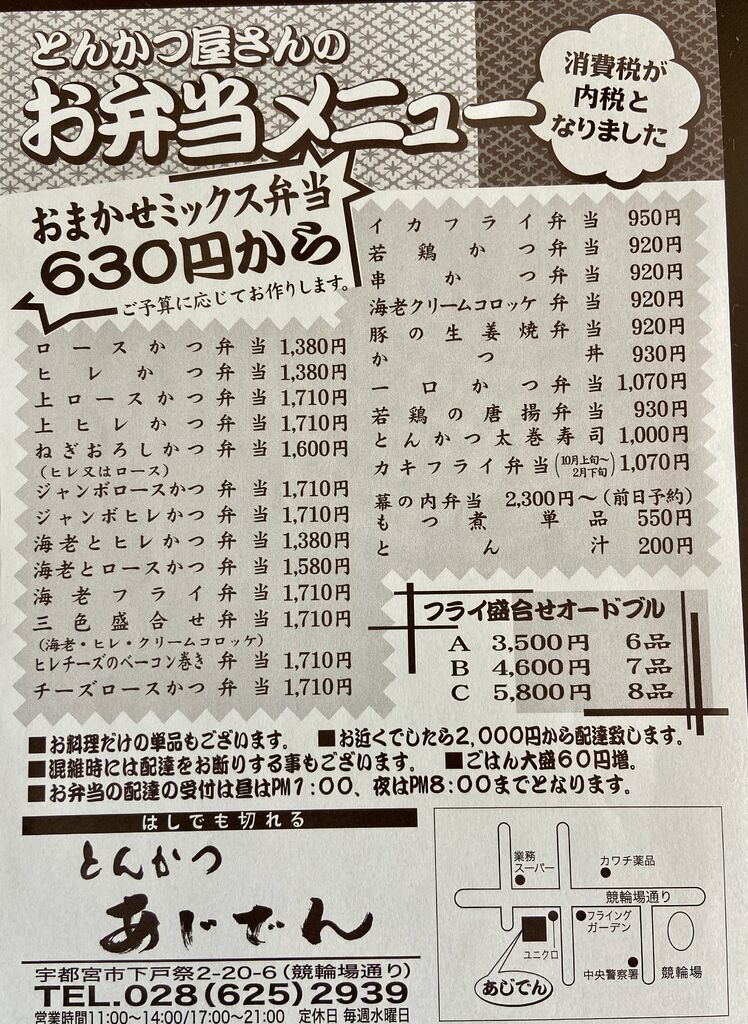 とんかつ屋さんの
お弁当メニュー
消費税が
内税と
なりました
おまかせミックス弁当
630円から
ご予算に応じてお作りします。
ロースかつ弁当 1,380円
ヒレかつ弁当 1,380円
上ロースかつ弁当 1,710円
上ヒレかつ弁当 1,710円
ねぎおろしかつ弁当 1,600円
(ヒレ又はロース)
ジャンボロースかつ弁当 1,710円
ジャンボヒレかつ弁当 1,710円
海老とヒレかつ弁当 1,380円
海老とロースかつ弁当 1,580円
海老フライ弁当 1,710円
三色盛合せ弁当 1,710円
(海老・ヒレ・クリームコロッケ)
ヒレチーズのベーコン巻き弁当 1,710円
チーズロースかつ弁当 1,710円
イカフライ弁当 950円
若鶏かつ弁当 920円
串かつ弁当 920円
海老クリームコロッケ弁当 920円
豚の生姜焼弁当 920円
かつ丼 930円
一口かつ弁当 1,070円
若鶏の唐揚弁当 930円
とんかつ太巻寿司 1,000円
カキフライ弁当(10月上旬〜2月下旬) 1,070円
幕の内弁当 2,300円〜(前日予約)
もつ煮単品 550円
とん汁 200円
フライ盛合せオードブル
A 3,500円 6品
B 4,600円 7品
C 5,800円 8品
■お料理だけの単品もございます。 ■お近くでしたら2,000円から配達致します。
■混雑時には配達をお断りする事もございます。 ■ごはん大盛60円増。
■お弁当の配達の受付は昼はPM1:00、夜はPM8:00までとなります。
はしでも切れる
とんかつ
あじでん
宇都宮市下戸祭2-20-6(競輪場通り)
TEL.028(625)2939
営業時間11:00〜14:00/17:00〜21:00 定休日 毎週水曜日
業務
スーパー
カワチ薬品
競輪場通り
フライング
ガーデン
ユニクロ
あじでん
中央警察署
競輪場